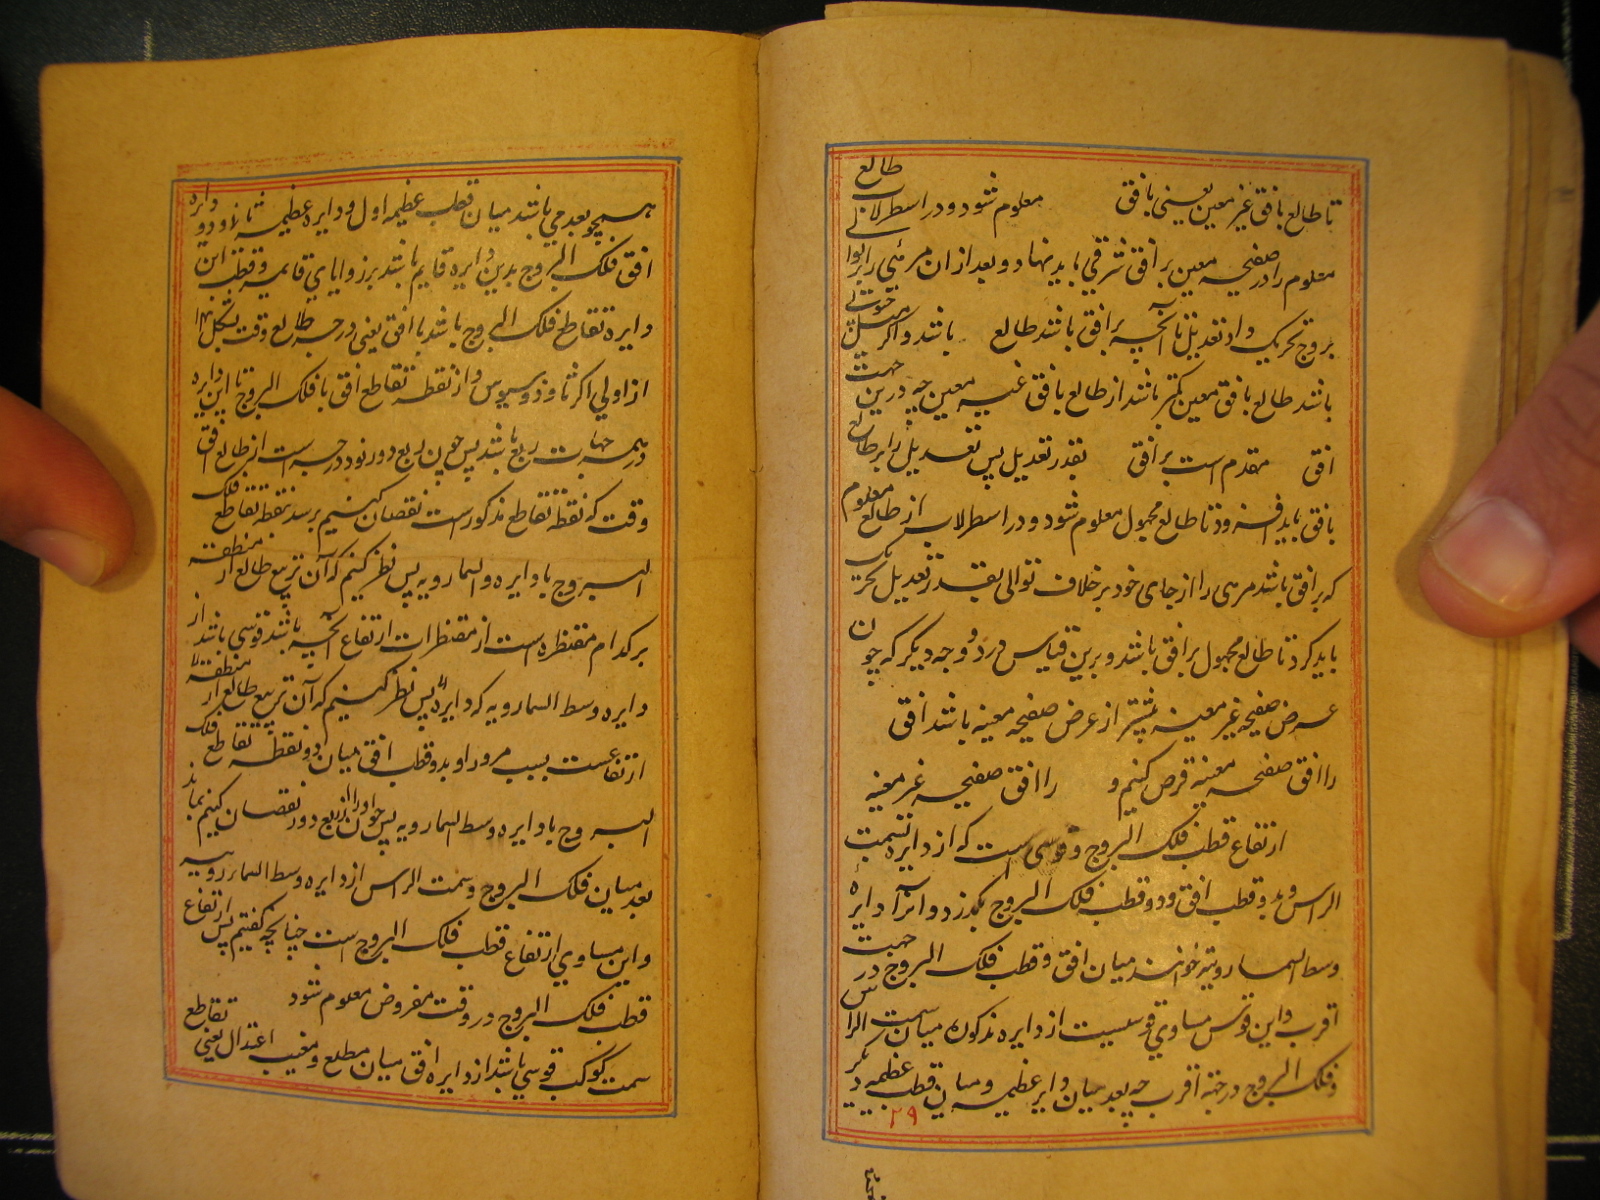 تا طالع بافق غیر معین یعنی بافق معلوم شود و در اسطرلاب طالع
معلوم را در صفیحه معین بر افق شرقی باید نهاد و بعد از ان مرئی را بر توالی
بروج تحریک داد تعدیل تا آنچه بر افق باشد طالع باشد و اگر
باشد طالع بافق معین کمتر باشد از طالع بافق غیر معین چه درین جهت
افق مقدم است بر افق بقدر تعدیل پس تعدیل را بر طالع
بافق باید افزود تا طالع مجهول معلوم شود و در اسطرلاب از طالع معلوم
که بر افق باشد مرئی را از جای خود بر خلاف توالی بقدر تعدیل تحریک
باید کرد تا طالع مجهول بر افق باشد و برین قیاس در دو وجه دیگر که چون
عرض صفیحه غیر معینه بیشتر از عرض صفیحه معینه باشد افق
را افق صفیحه معینه فرض کنیم و را افق صفیحه غیر معینه
ارتفاع قطب فلک البروج قوسی است که از دایره که بسمت
الراس و بدو قطب افق و دو قطب فلک البروج بگذرد و آنرا دایره
وسط السما رویه خوانند میان افق و قطب فلک البروج در جهت
اقرب و این قوس مساوی قوسیست از دایره مذکوره میان سمت الراس
و فلک البروج در جهة اقرب چه بعد میان دایره عظیمه و میان قطب عظیمه دیگر
۲۹
همچو بعدی باشد میان قطب عظیمه اول و دایره عظیمه ثانیه و دو دایره
افق فلک البروج بدین دایره قایم باشد بر زوایای قایمه و قطب این
دایره تقاطع فلک البروج باشد با افق یعنی درجه طالع وقت بشکل
از اولی اکر ثاوذوسیوس و از نقطه تقاطع افق با فلک البروج تا این دایره
در همه جهات ربع باشد پس چون ربع دور نود درجه است از طالع افق
وقت که نقطه تقاطع مذکور است نقصان کنیم برسد بنقطه تقاطع فلک
البروج با دایره وسط السما رویه پس نظر کنیم که آن تربیع طالع از منطقه
بر کدام مقنطره است از مقنطرات ارتفاع آنچه باشد قوسی باشد از
دایره وسط السما رویه که دایره پس نظر کنیم که آن تربیع طالع از منطقه
ارتفاعست بسبب مرور او بدو قطب افق میان دو نقطه تقاطع فلک
البروج با دایره وسط السما رویه پس چون آنرا از ربع دور نقصان کنیم بماند
بعد میان فلک البروج و سمت الراس از دایره وسط السما رویه
و این مساوی ارتفاع قطب فلک البروج است چنانچه گفتیم پس ارتفاع
قطب فلک البروج در وقت مفروض معلوم شود
سمت کوکب قوسی باشد از دایره افق میان مطلع و مغیب اعتدال یعنی تقاطع